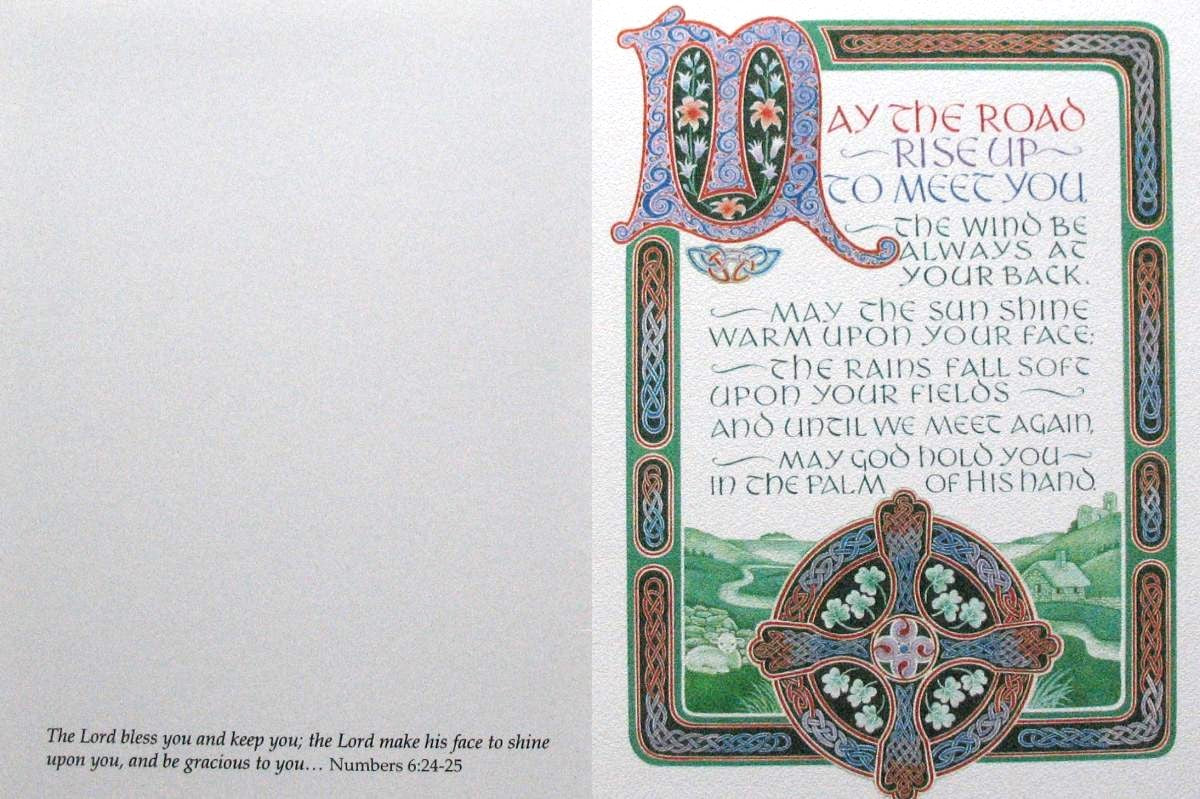 The Lord bless you and keep you; the Lord make his face to shine
upon you, and be gracious to you… Numbers 6:24-25
MAY THE ROAD
RISE UP
TO MEET YOU.
THE WIND BE
ALWAYS AT
YOUR BACK.
MAY THE SUN SHINE
WARM UPON YOUR FACE;
THE RAINS FALL SOFT
UPON YOUR FIELDS
AND UNTIL WE MEET AGAIN,
MAY GOD HOLD YOU
IN THE PALM OF HIS HAND.